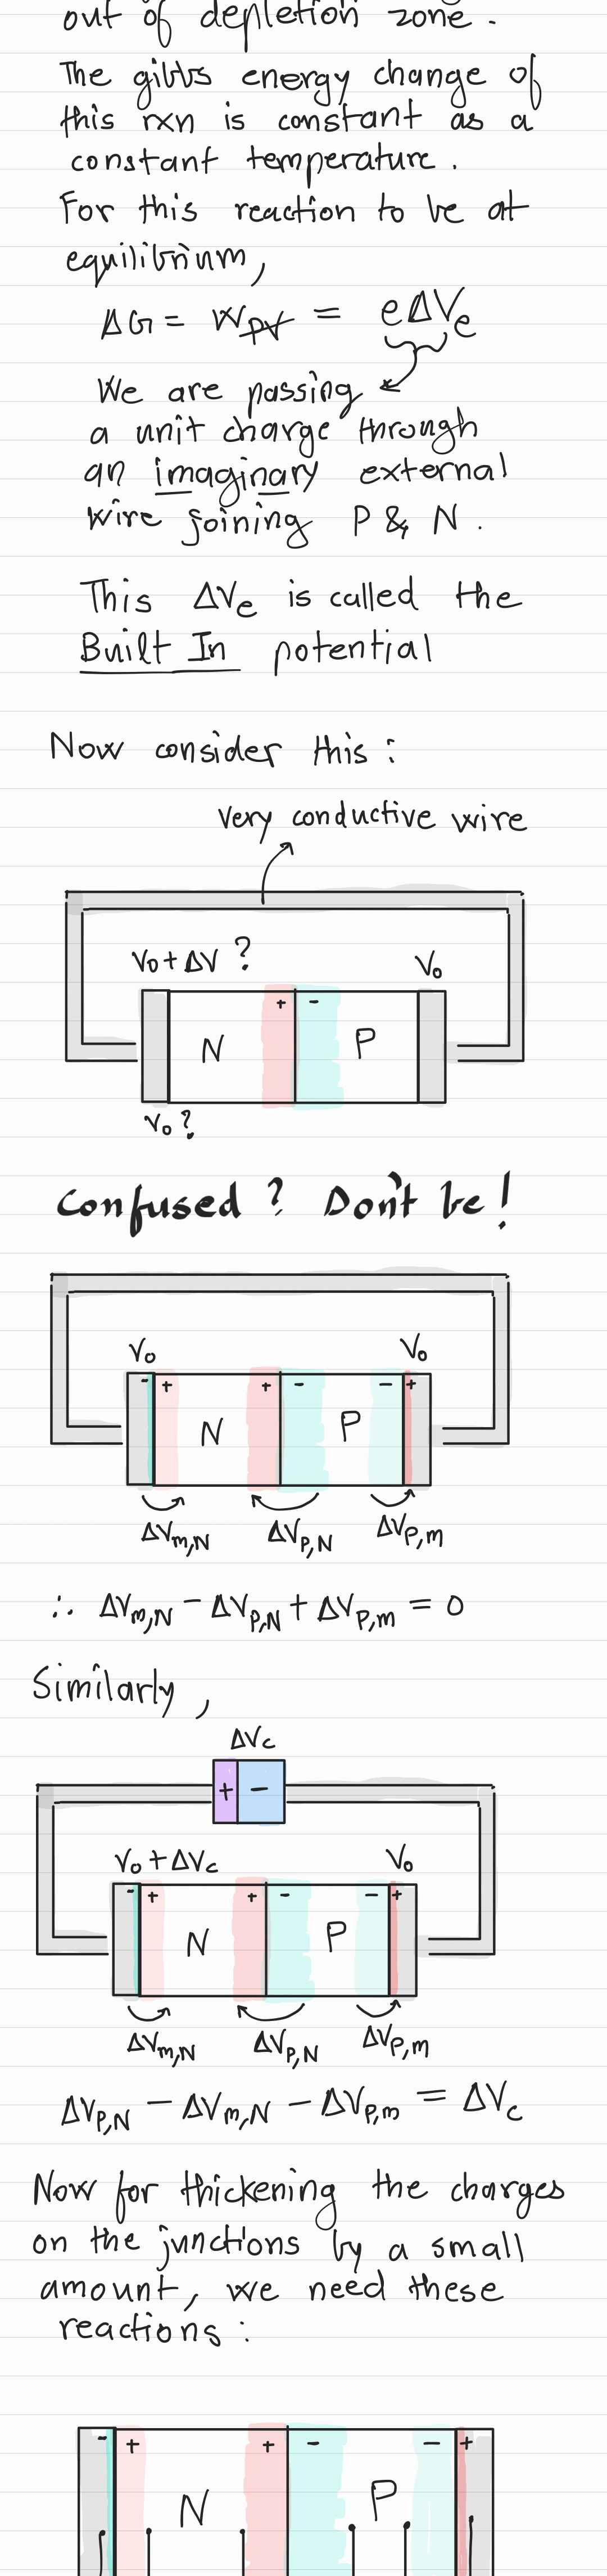 out of depletion zone.
The gibbs energy change of
this rxn is constant as a
constant temperature.
For this reaction to be at
equilibrium,
ΔG = W_PV = eΔV_e
We are passing
a unit charge through
an imaginary external
wire joining P & N.
This ΔV_e is called the
Built In potential
Now consider this:
Very conductive wire
V₀+ΔV ? V₀
+ -
N P
V₀?
Confused? Don't be!
V₀ V₀
- + + - - +
N P
ΔV_m,N ΔV_P,N ΔV_P,m
∴ ΔV_m,N - ΔV_P,N + ΔV_P,m = 0
Similarly,
ΔV_c
+ -
V₀+ΔV_c V₀
- + + - - +
N P
ΔV_m,N ΔV_P,N ΔV_P,m
ΔV_P,N - ΔV_m,N - ΔV_P,m = ΔV_c
Now for thickening the charges
on the junctions by a small
amount, we need these
reactions:
- + + - - +
N P